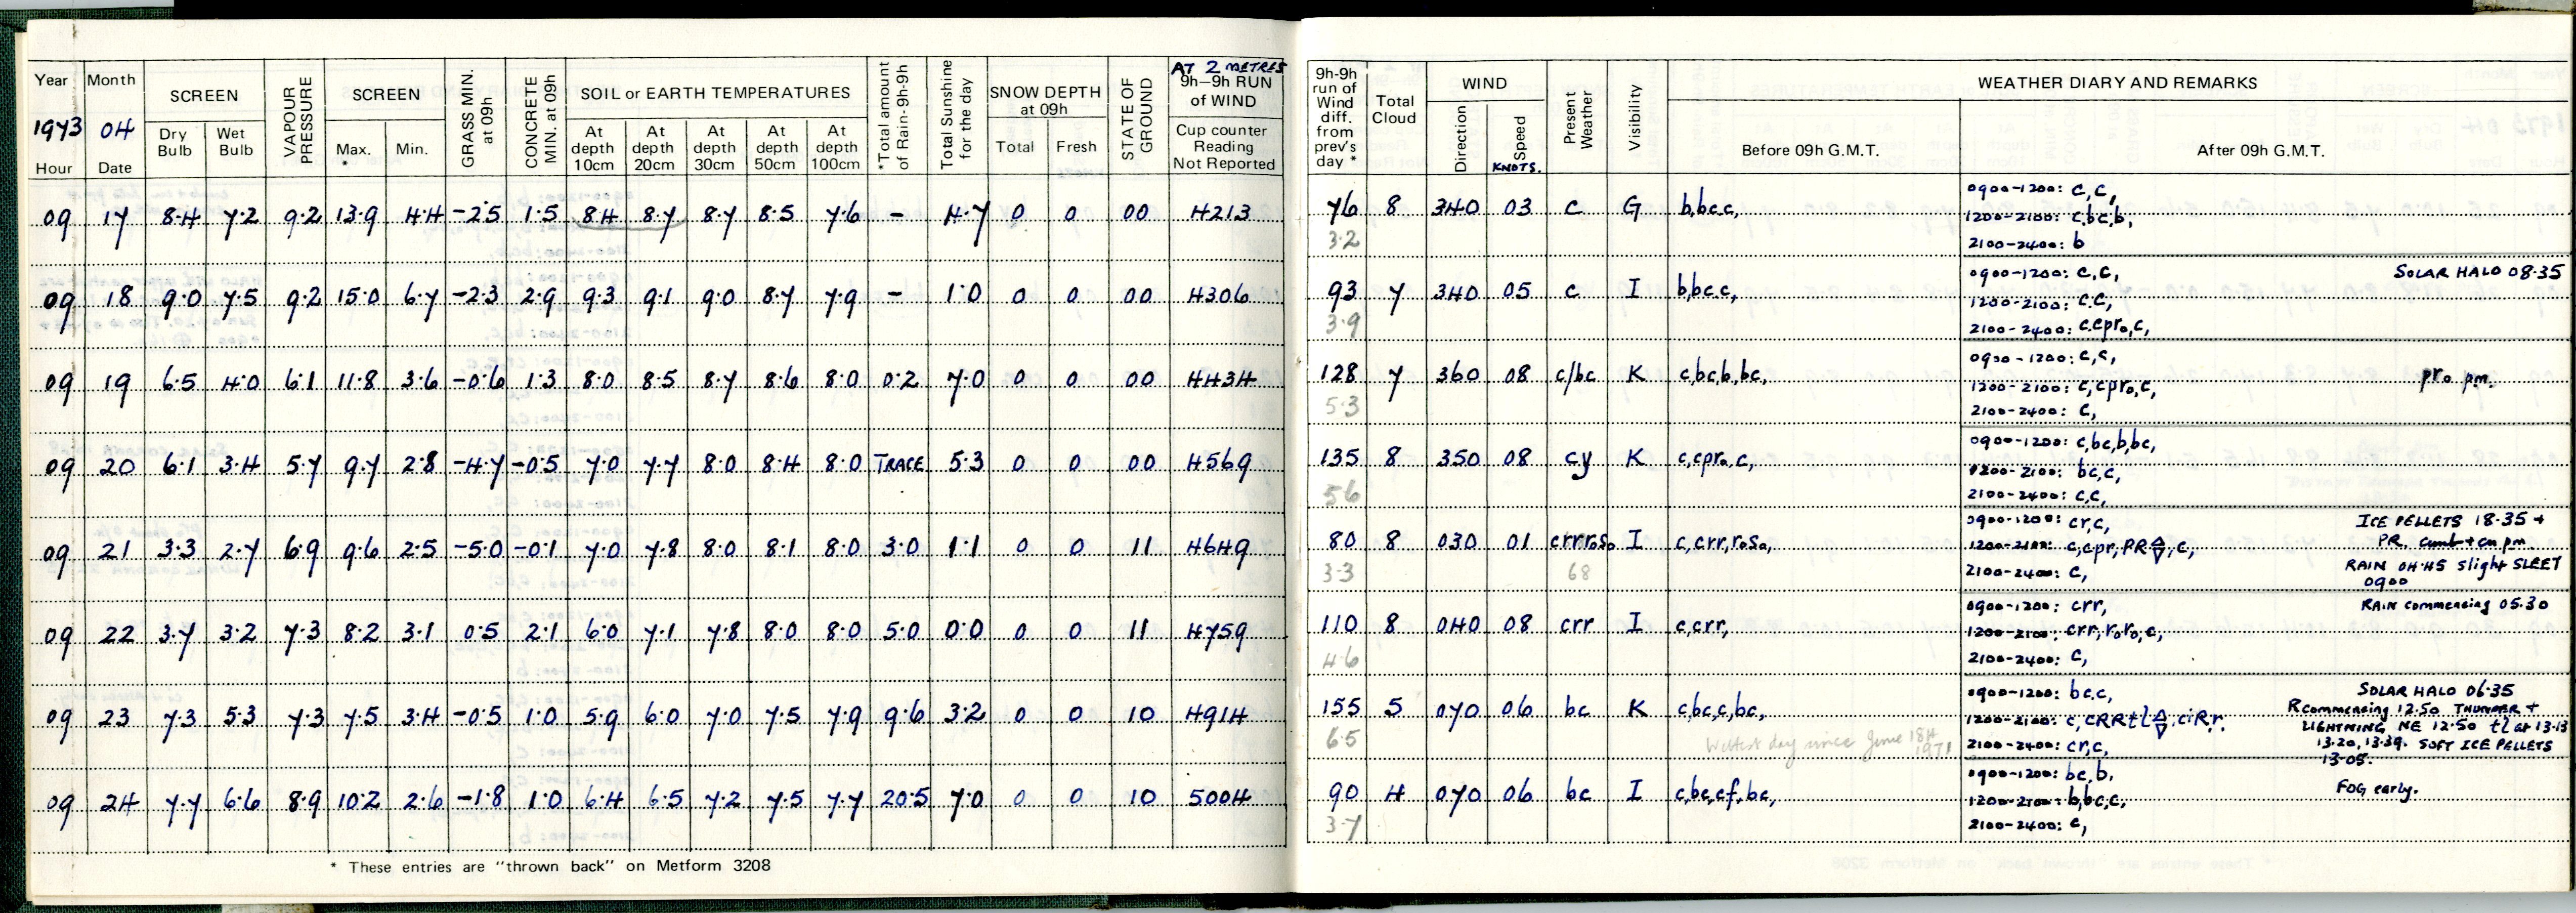 Year Month SCREEN VAPOUR PRESSURE SCREEN GRASS MIN. at 09h CONCRETE MIN. at 09h SOIL or EARTH TEMPERATURES *Total amount of Rain-9h-9h Total Sunshine for the day SNOW DEPTH at 09h STATE OF GROUND AT 2 METRES 9h-9h RUN of WIND
1973 04 Dry Bulb Wet Bulb Max. * Min. At depth 10cm At depth 20cm At depth 30cm At depth 50cm At depth 100cm Total Fresh Cup counter Reading Not Reported
Hour Date
09 17 8.4 7.2 9.2 13.9 4.4 -2.5 1.5 8.4 8.7 8.7 8.5 7.6 - 4.7 0 0 00 4213
09 18 9.0 7.5 9.2 15.0 6.7 -2.3 2.9 9.3 9.1 9.0 8.7 7.9 - 1.0 0 0 00 4306
09 19 6.5 4.0 6.1 11.8 3.6 -0.6 1.3 8.0 8.5 8.7 8.6 8.0 0.2 7.0 0 0 00 4434
09 20 6.1 3.4 5.7 9.7 2.8 -4.7 -0.5 7.0 7.7 8.0 8.4 8.0 TRACE 5.3 0 0 00 4569
09 21 3.3 2.7 6.9 9.6 2.5 -5.0 -0.1 7.0 7.8 8.0 8.1 8.0 3.0 1.1 0 0 11 4649
09 22 3.7 3.2 7.3 8.2 3.1 0.5 2.1 6.0 7.1 7.8 8.0 8.0 5.0 0.0 0 0 11 4759
09 23 7.3 5.3 7.3 7.5 3.4 -0.5 1.0 5.9 6.0 7.0 7.5 7.9 9.6 3.2 0 0 10 4914
09 24 7.7 6.6 8.9 10.2 2.6 -1.8 1.0 6.4 6.5 7.2 7.5 7.7 20.5 7.0 0 0 10 5004
* These entries are "thrown back" on Metform 3208
9h-9h run of Wind diff. from prev's day * Total Cloud WIND Present Weather Visibility WEATHER DIARY AND REMARKS
Direction Speed KNOTS. Before 09h G.M.T. After 09h G.M.T.
76 8 340 03 c G b,bc,c, 0900-1200: c,c,
1200-2100: c,bc,b,
3.2 2100-2400: b
93 7 340 05 c I b,bc,c, 0900-1200: c,c, SOLAR HALO 08.35
1200-2100: c,c,
3.9 2100-2400: c,cpro,c,
128 7 360 08 c/bc K c,bc,b,bc, 0900-1200: c,c,
1200-2100: c,cpro,c, pro pm.
5.3 2100-2400: c,
135 8 350 08 cy K c,cpro,c, 0900-1200: c,bc,b,bc,
1200-2100: bc,c,
5.6 2100-2400: c,c,
80 8 030 01 crrroso I c,crr,roso, 0900-1200: cr,c, ICE PELLETS 18.35 +
1200-2100: c,cpr,PR,c, PR. cumb + cu pm
3.3 68 2100-2400: c, RAIN 04.45 slight SLEET
0900
110 8 040 08 crr I c,crr, 0900-1200: crr, RAIN commencing 05.30
1200-2100: crr,roro,c,
4.6 2100-2400: c,
155 5 070 06 bc K c,bc,c,bc, 0900-1200: bc,c, SOLAR HALO 06.35
R commencing 12.50 THUNDER +
1200-2100: c,cRRtl,ciRr. LIGHTNING NE 12.50 tl at 13.13
6.5 Wettest day since June 18th 1971 2100-2400: cr,c, 13.20, 13.39. SOFT ICE PELLETS
13.05.
90 4 070 06 bc I c,bc,cf,bc, 0900-1200: bc,b, FOG early.
1200-2100: b,bc,c,
3.7 2100-2400: c,